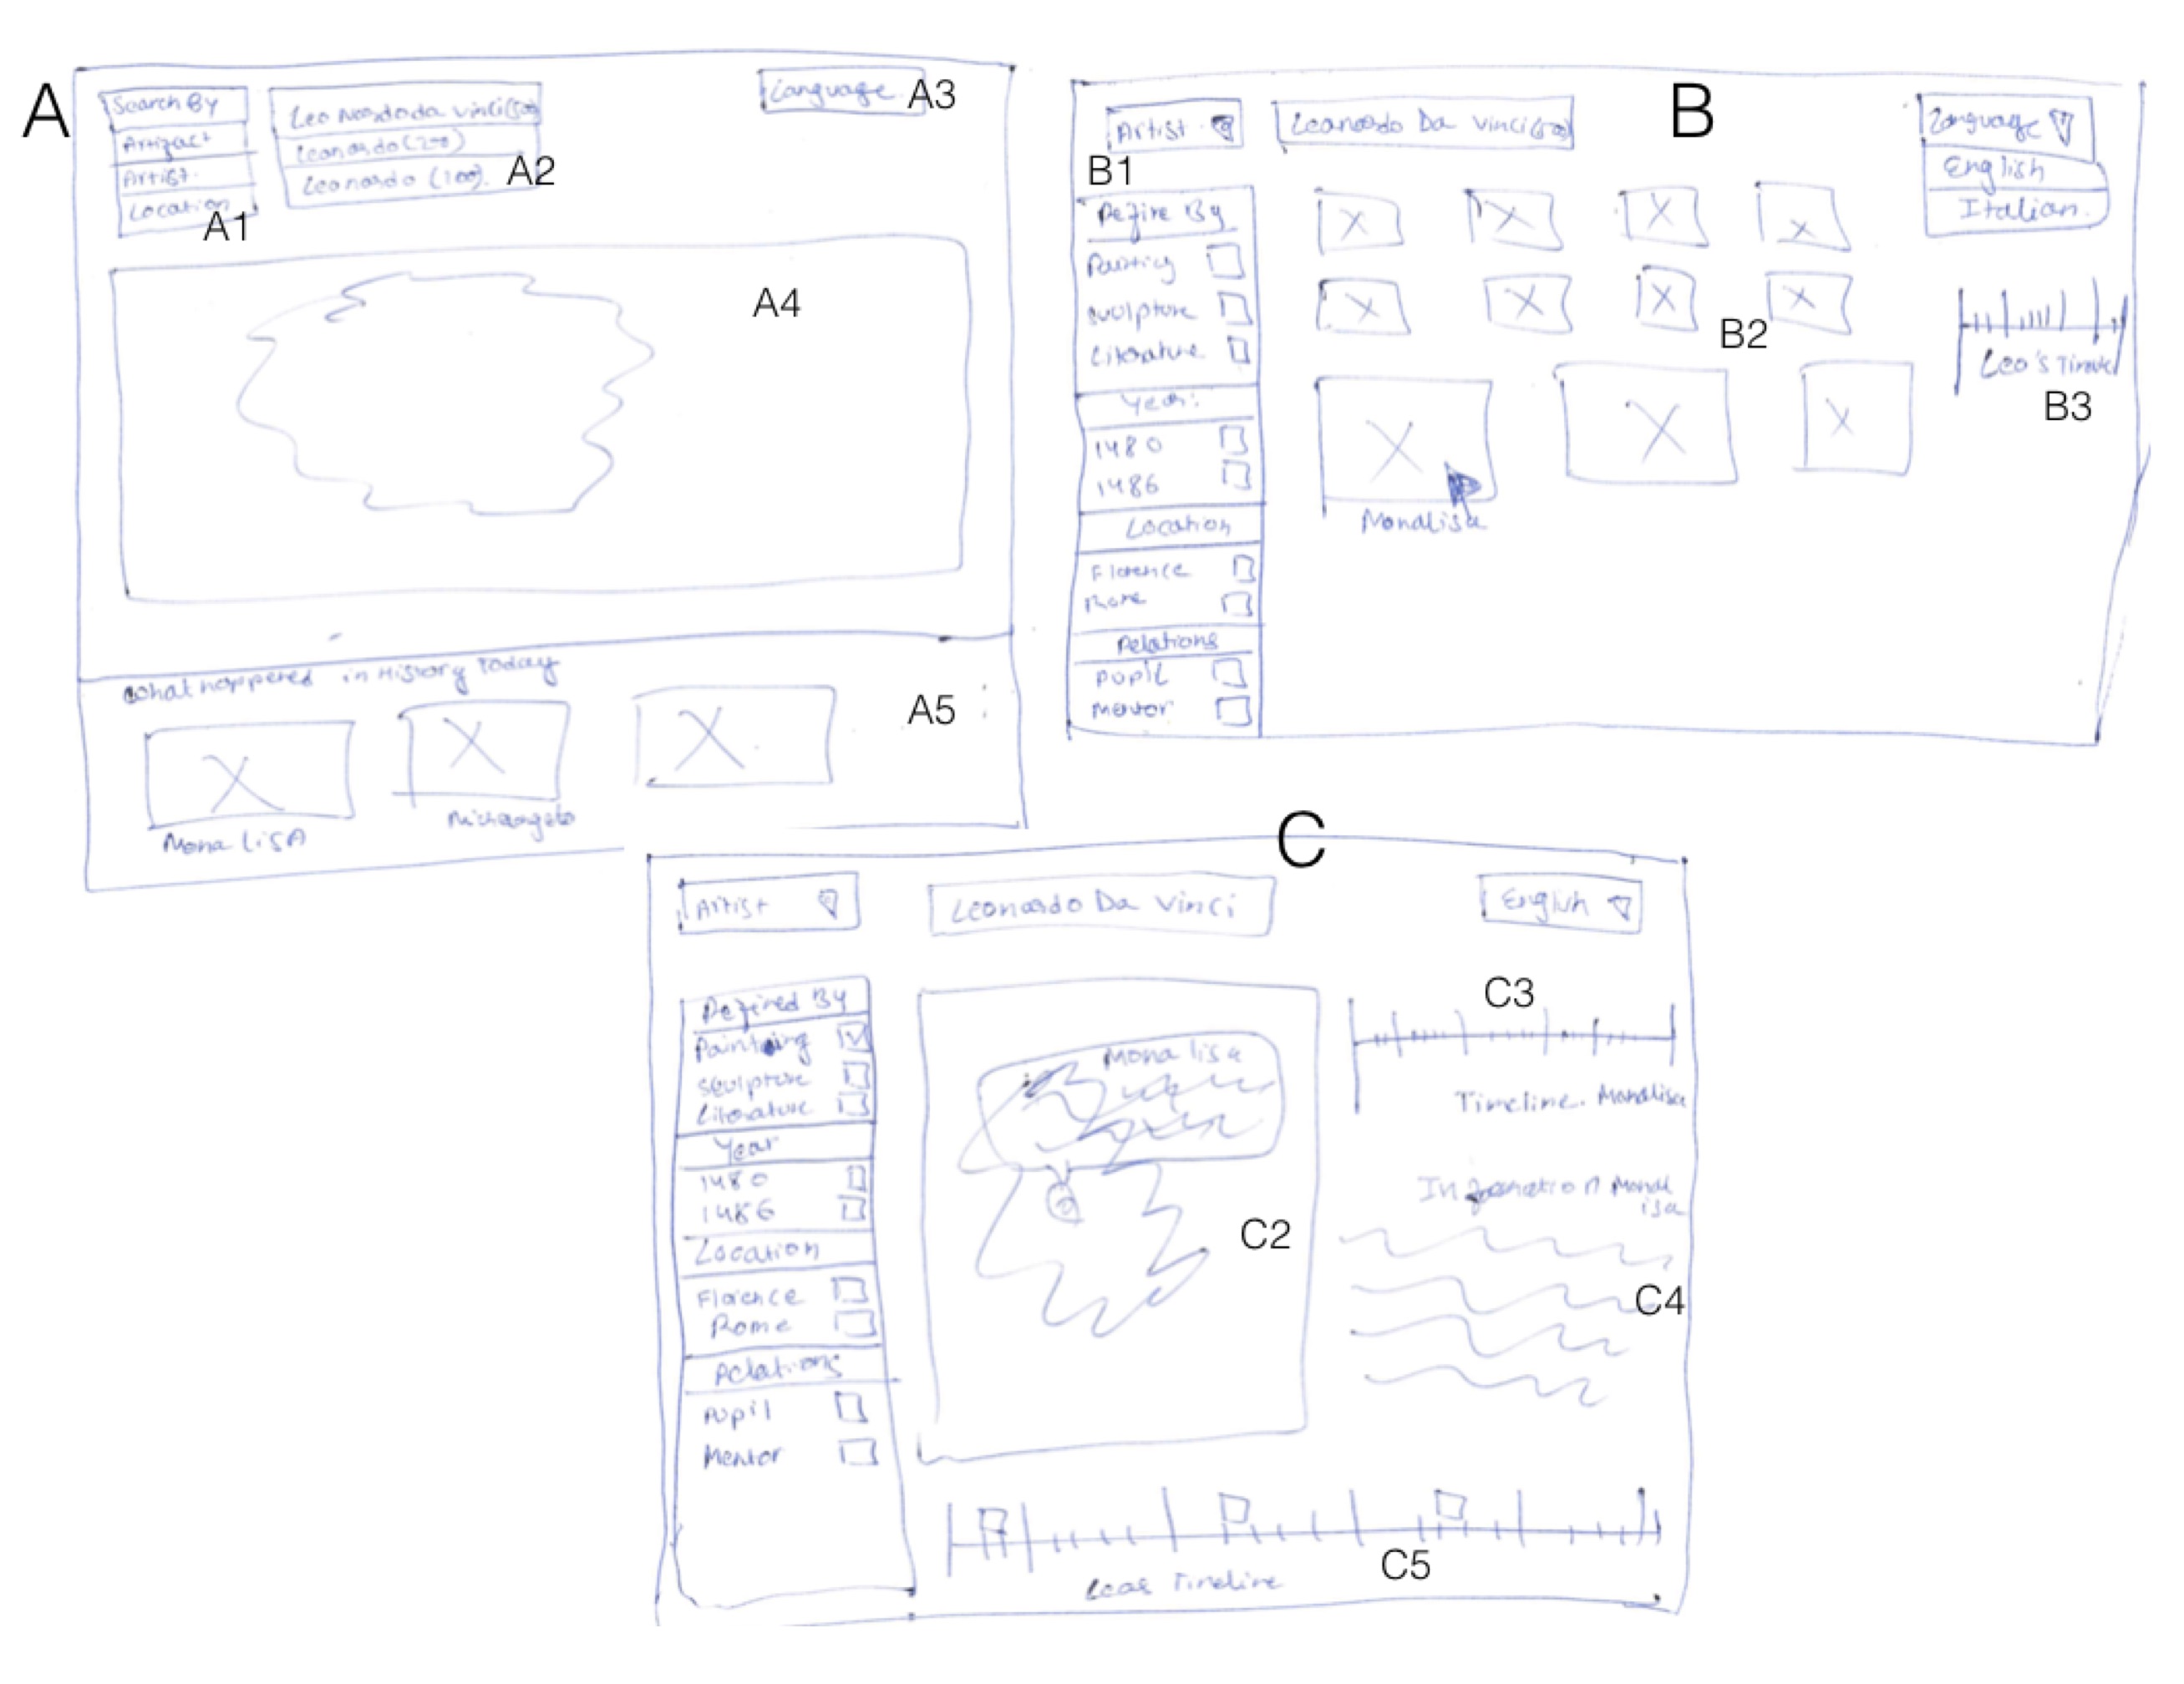 A
Search By
Artifact
Artist.
Location
A1
Leonardo da Vinci (500)
Leonardo (200)
Leonardo (100).
A2
Language
A3
A4
What happened in History Today
Mona LiSA
Michaangelo
A5
B
Artist
Leonardo Da Vinci (500)
Language
English
Italian.
B1
Refine By
Painting
Sculpture
Literature
Year:
1480
1486
Location
Florence
Rome
Relations
pupil
Mentor
B2
Monalisa
Leo's
B3
C
Artist
Leonardo Da Vinci
English
Refined By
Painting
Sculpture
Literature
Year
1480
1486
Location
Florence
Rome
Relations
Pupil
Mentor
Mona lisa
C2
C3
Timeline. Monalisa
Information Monal
isa
C4
C5
Leos Timeline